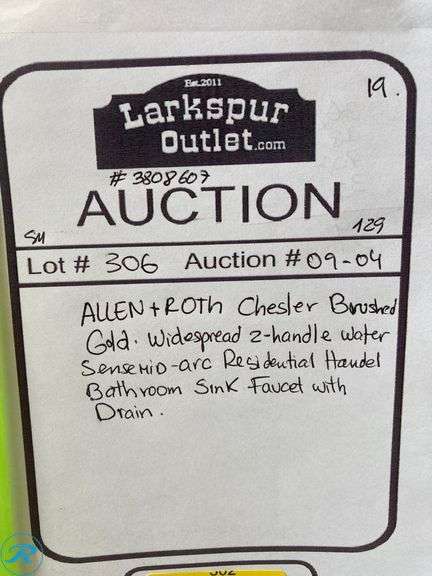 Est.2011
19.
Larkspur
Outlet.com
# 3808607
AUCTION
SM
129
Lot # 306 Auction # 09-04
ALLEN + ROTH Chesler Brushed
Gold. Widespread 2-handle water
Sense MID-arc Residential Handel
Bathroom Sink Faucet with
Drain.
R
302